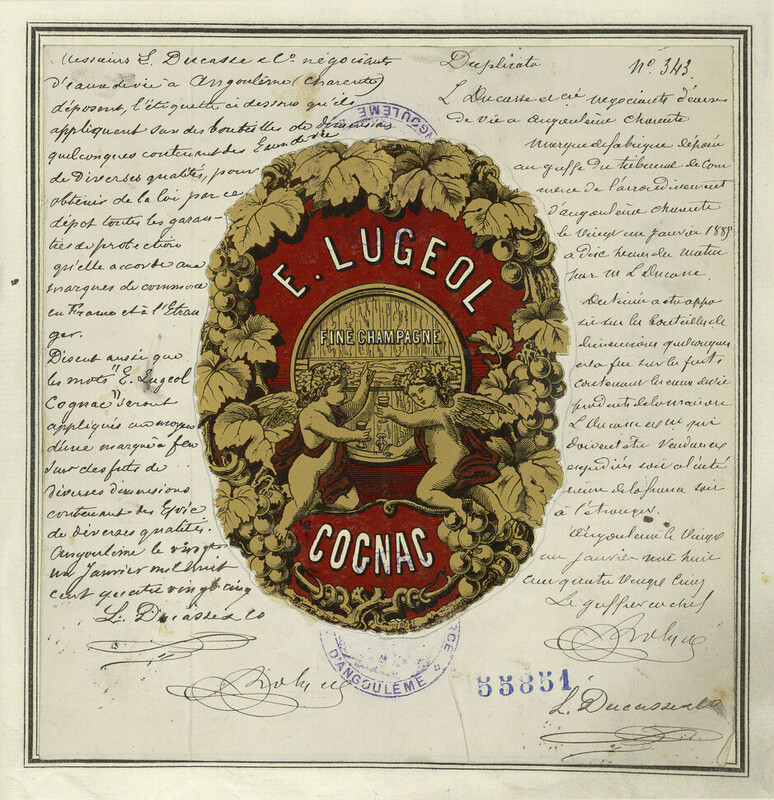 Messieurs L. Ducasse & Co. négociants
d'eaux de vie à Angoulême (Charente)
déposent, l'étiquette ci dessus qu'ils
appliquent sur des bouteilles de dimensions
quelconques contenant des Eaux de vie
de diverses qualités, pour
obtenir de la loi par ce
dépot toutes les garan-
ties de protection
qu'elle accorde aux
marques de commerce
en France et à l'Etran
ger.
Disent aussi que
les mots "E. Lugeol
Cognac" seront
appliqués au moyen
d'une marque à feu
sur des futs de
diverses dimensions
contenant des
de diverses qualités.
Angoulême le vingt
un Janvier mil huit
cent quatre vingt cinq
L. Ducasse & Co
D'ANGOULÊME
E. LUGEOL
FINE CHAMPAGNE
COGNAC
D'ANGOULÊME
Duplicata N° 343.
L Ducasse et cie négociants d'eaux
de vie a angoulême charente
Marque de fabrique déposée
au greffe du tribunal de Com
merce de l'arrondissement
d'angoulême charente
le vingt un janvier 1885
a dix heures du matin
par M L Ducasse.
Destinée a etre appo
sée sur les bouteilles de
dimensions quelconques
et a feu sur les futs
contenant les eaux de vie
produits de la maison
L Ducasse et cie qui
doivent etre vendus ou
expediés soit a l'inté
rieur de la france soit
à l'étranger.
Angoulême le vingt
un janvier mil huit
cent quatre vingt cinq
Le greffier
55851
L. Ducasse & Co